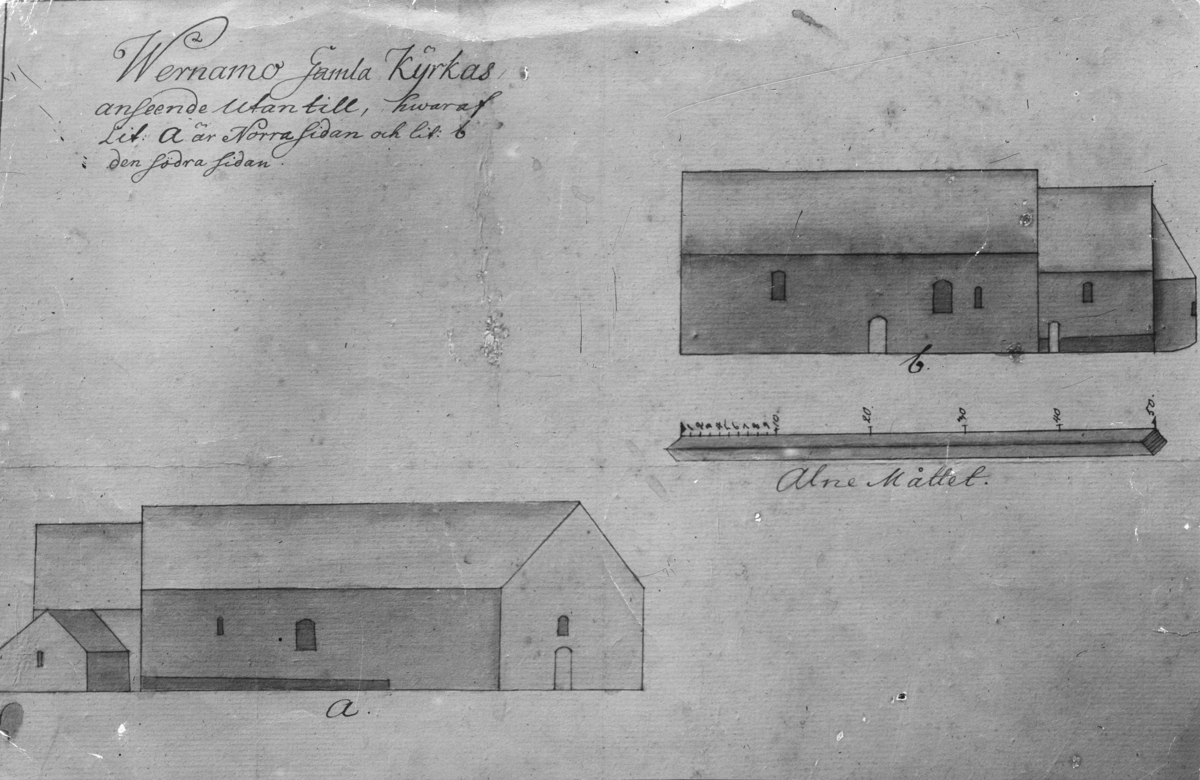 Wernamo Gamla Kÿrkas
anseende utan till, hwaraf
Lit: a är Norra sidan och lit: b
den södra sidan.
b.
10. 20. 30 40 50.
Alne Måttet.
a.